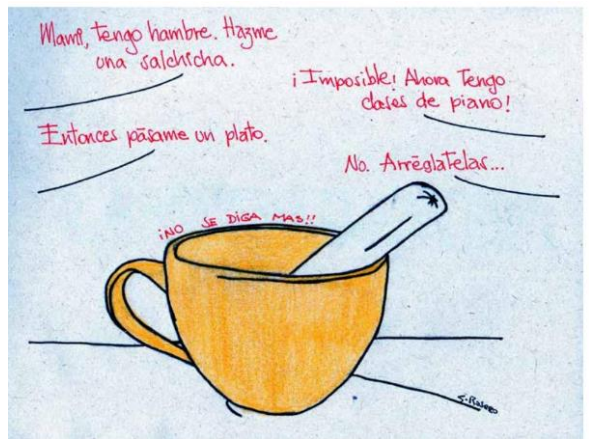 Mami, tengo hambre. Hazme
una salchicha.
¡Imposible! Ahora Tengo
clases de piano!
Entonces pásame un plato.
No. Arréglatelas...
¡NO SE DIGA MAS!!